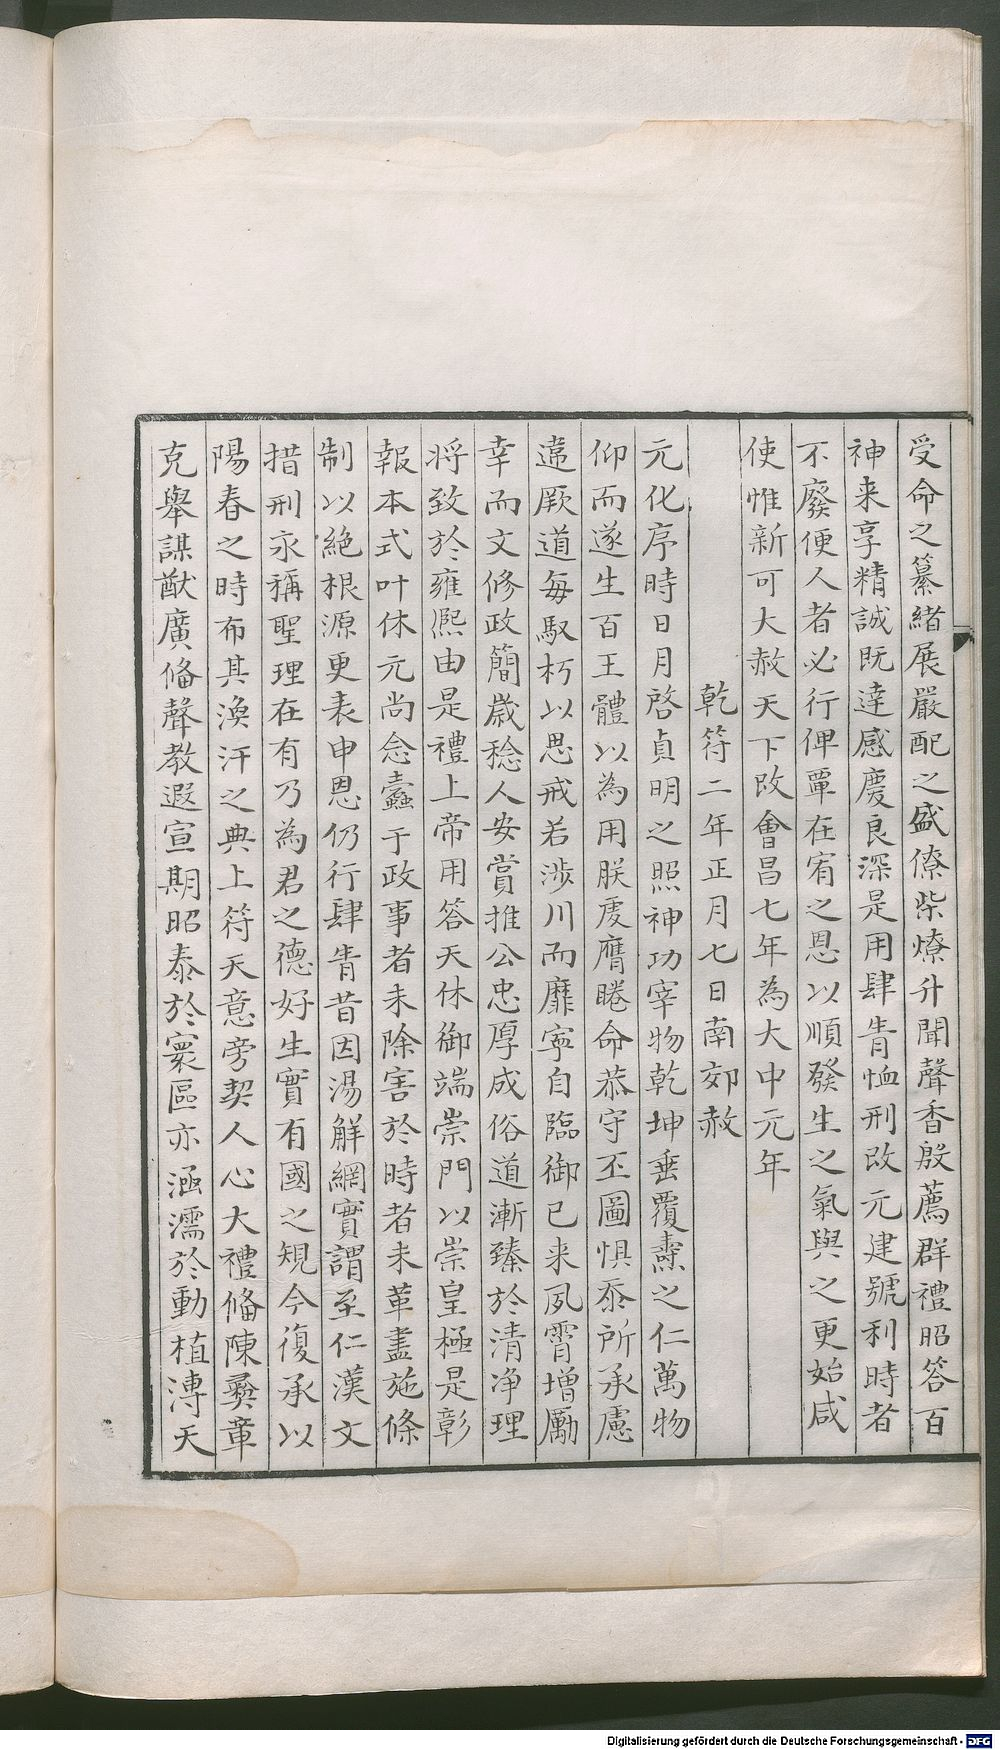 受命之纂緒展嚴配之盛僚柴燎升聞聲香殷薦群禮昭答百
神来享精誠既達感慶良深是用肆眚恤刑改元建號利時者
不廢便人者必行俾覃在宥之恩以順發生之氣與之更始咸
使惟新可大赦天下改會昌七年為大中元年
乾符二年正月七日南郊赦
元化序時日月啓貞明之照神功宰物乾坤垂覆燾之仁萬物
仰而遂生百王體以為用朕虔膺睠命恭守丕圖惧忝所承慮
違厥道每馭朽以思戒若涉川而靡寧自臨御已来夙霄增勵
幸而文修政簡歳稔人安賞推公忠厚成俗道漸臻於清浄理
将致於雍熈由是禮上帝用答天休御端崇門以崇皇極是彰
報本式叶休元尚念蠹于政事者未除害於時者未革盡施條
制以絶根源更表申恩仍行肆眚昔因湯觧網實謂至仁漢文
措刑永稱聖理在有乃為君之德好生實有國之規今復承以
陽春之時布其渙汗之典上符天意旁契人心大禮俻陳彝章
克舉謀猷廣俻聲教遐宣期昭泰於寰區亦涵濡於動植溥天
Digitalisierung gefördert durch die Deutsche Forschungsgemeinschaft - DFG